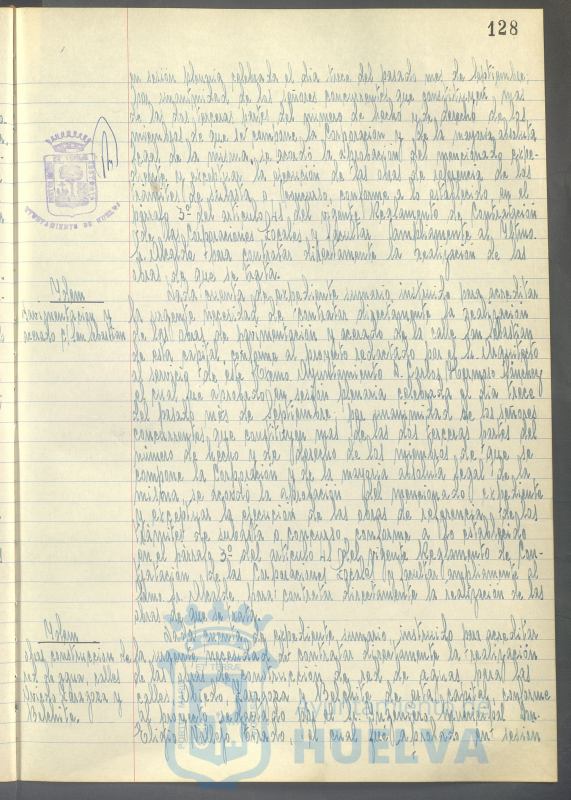 128
en sesión plenaria celebrada el día trece del pasado mes de Septiembre;
por unanimidad de los señores concurrentes, que constituyen mas
de las dos terceras partes del número de hecho y de derecho de los
miembros de que se compone la Corporación y de la mayoria absoluta
legal de la misma, se acordó la aprobación del mencionado expe-
diente y exceptuar la ejecución de las obras de referencia de los
trámites de subasta o concurso, conforme a lo establecido en el
párrafo 3º del articulo 41 del vigente Reglamento de Contratación
de las Corporaciones Locales y facultar ampliamente al Iltmo.
Sr. Alcalde para contratar directamente la realización de las
obras de que se trata.
AYUNTAMIENTO DE HUELVA
Idem
pavimentacion y
acerado c/ San Sebastian
Dada cuenta de expediente sumario instruido para acreditar
la urgente necesidad de contratar directamente la realización
de las obras de pavimentación y acerado de la calle San Sebastian
de esta capital conforme al proyecto redactado por el Sr. Arquitecto
al servicio de este Excmo. Ayuntamiento D. Carlos Hermoso Sánchez
el cual fue aprobado en sesión plenaria celebrada el día trece
del pasado mes de Septiembre; por unanimidad de los señores
concurrentes, que constituyen mas de las dos terceras partes del
número de hecho y de derecho de los miembros de que se
compone la Corporación y de la mayoria absoluta legal de la
misma, se acordó la aprobación del mencionado expediente
y exceptuar la ejecución de las obras de referencia de los
trámites de subasta o concurso conforme a lo establecido
en el párrafo 3º del articulo 41 del vigente Reglamento de Con-
tratación de las Corporaciones Locales y facultar ampliamente al
Iltmo. Sr. Alcalde para contratar directamente la realización de las
obras de que se trata.
Idem
obras construccion de
red de agua, calles
Oviedo, Zaragoza y
Belchite.
Dada cuenta de expediente sumario, instruido para acreditar
la urgente necesidad de contratar directamente la realización
de las obras de construcción de red de aguas para las
calles Oviedo, Zaragoza y Belchite de esta capital, conforme
al proyecto redactado por el Sr. Ingeniero Municipal Don
Tirado, el cual fue aprobado en sesión
Ayuntamiento de
HUELVA